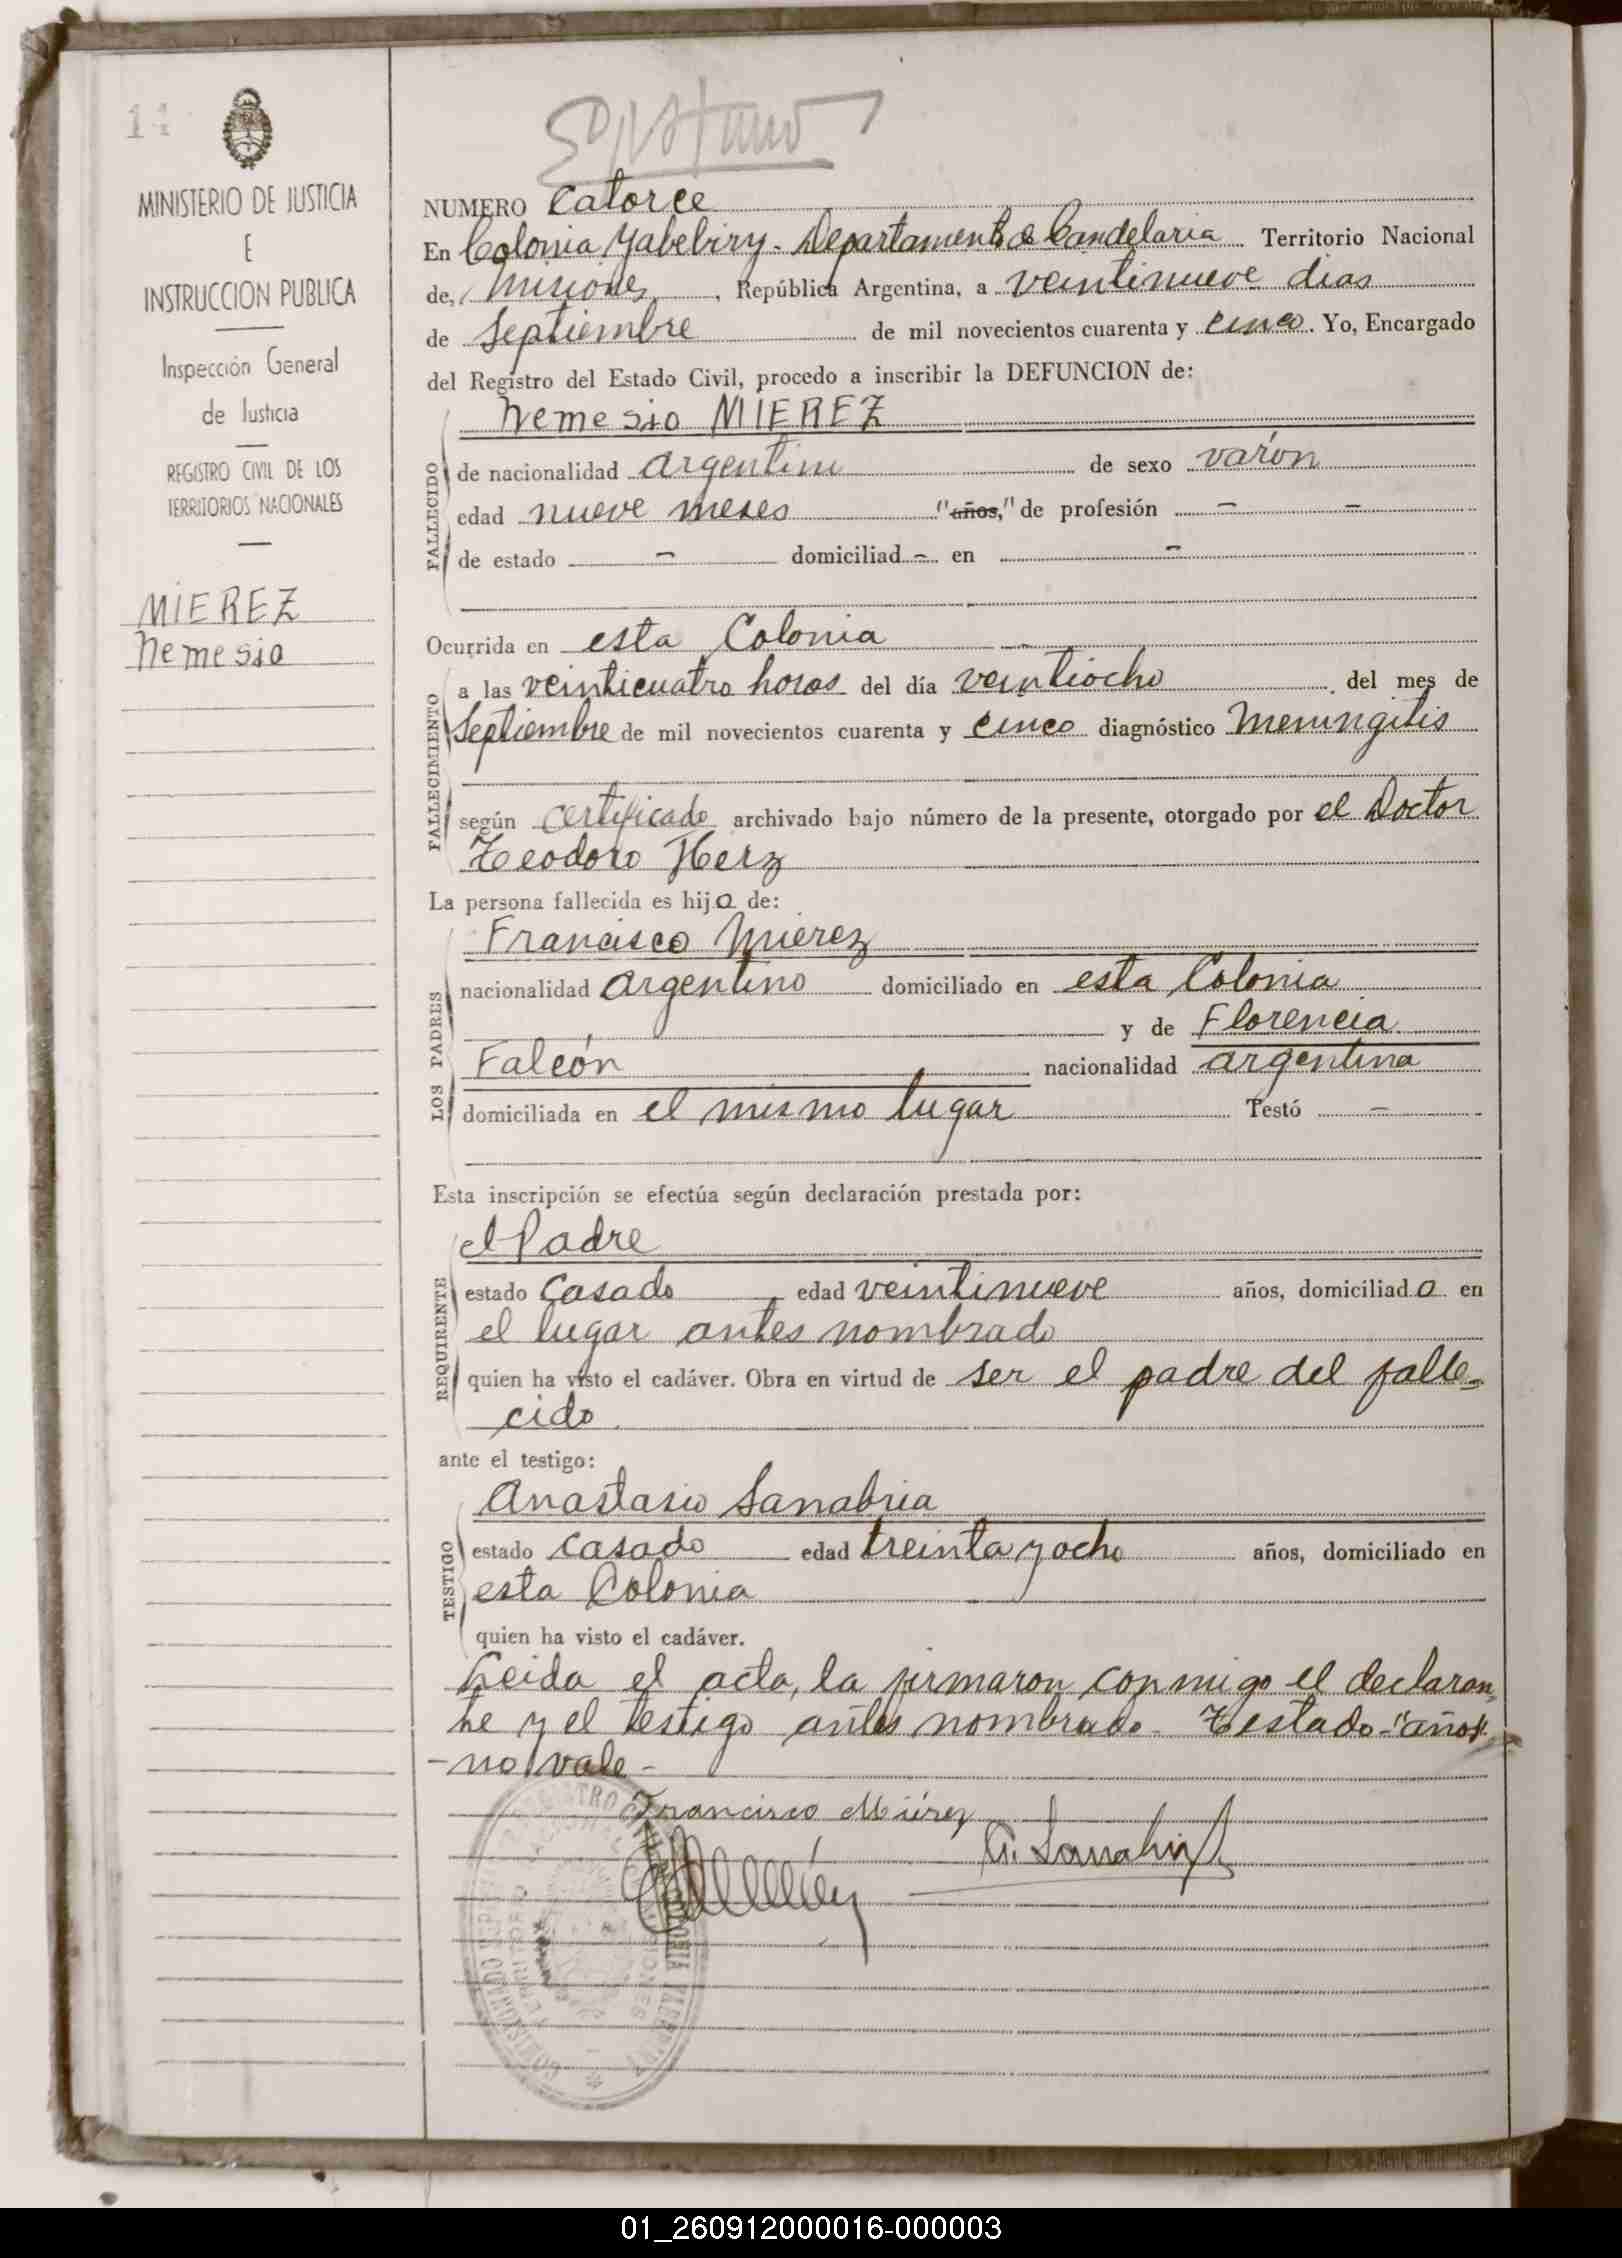 14
MINISTERIO DE JUSTICIA
E
INSTRUCCION PUBLICA
Inspección General
de Justicia
REGISTRO CIVIL DE LOS
TERRITORIOS NACIONALES
MIEREZ
Nemesio
NUMERO Catorce
En Colonia Yabebiry - Departamento de Candelaria Territorio Nacional
de, Misiones, República Argentina, a veintinueve dias
de Septiembre de mil novecientos cuarenta y cinco. Yo, Encargado
del Registro del Estado Civil, procedo a inscribir la DEFUNCION de:
FALLECIDO
Nemesio MIEREZ
de nacionalidad argentino de sexo varón
edad nueve meses "años," de profesión - -
de estado - domiciliad - en -
Ocurrida en esta Colonia
FALLECIMIENTO
a las veinticuatro horas del día veintiocho del mes de
Septiembre de mil novecientos cuarenta y cinco diagnóstico Meningitis
según certificado archivado bajo número de la presente, otorgado por el Doctor
Teodoro Herz
La persona fallecida es hijo de:
LOS PADRES
Francisco Mierez
nacionalidad argentino domiciliado en esta Colonia
y de Florencia
Falcón nacionalidad argentina
domiciliada en el mismo lugar Testó -
Esta inscripción se efectúa según declaración prestada por:
REQUIRENTE
el Padre
estado Casado edad veintinueve años, domiciliado en
el lugar antes nombrado
quien ha visto el cadáver. Obra en virtud de ser el padre del falle-
cido.
ante el testigo:
TESTIGO
Anastasio Sanabria
estado casado edad treinta y ocho años, domiciliado en
esta Colonia
quien ha visto el cadáver.
Leida el acta, la firmaron conmigo el declaran-
te y el testigo antes nombrado. Testado-"años"
- no vale -
Francisco Miérez
A. Sanabria
01_260912000016-000003